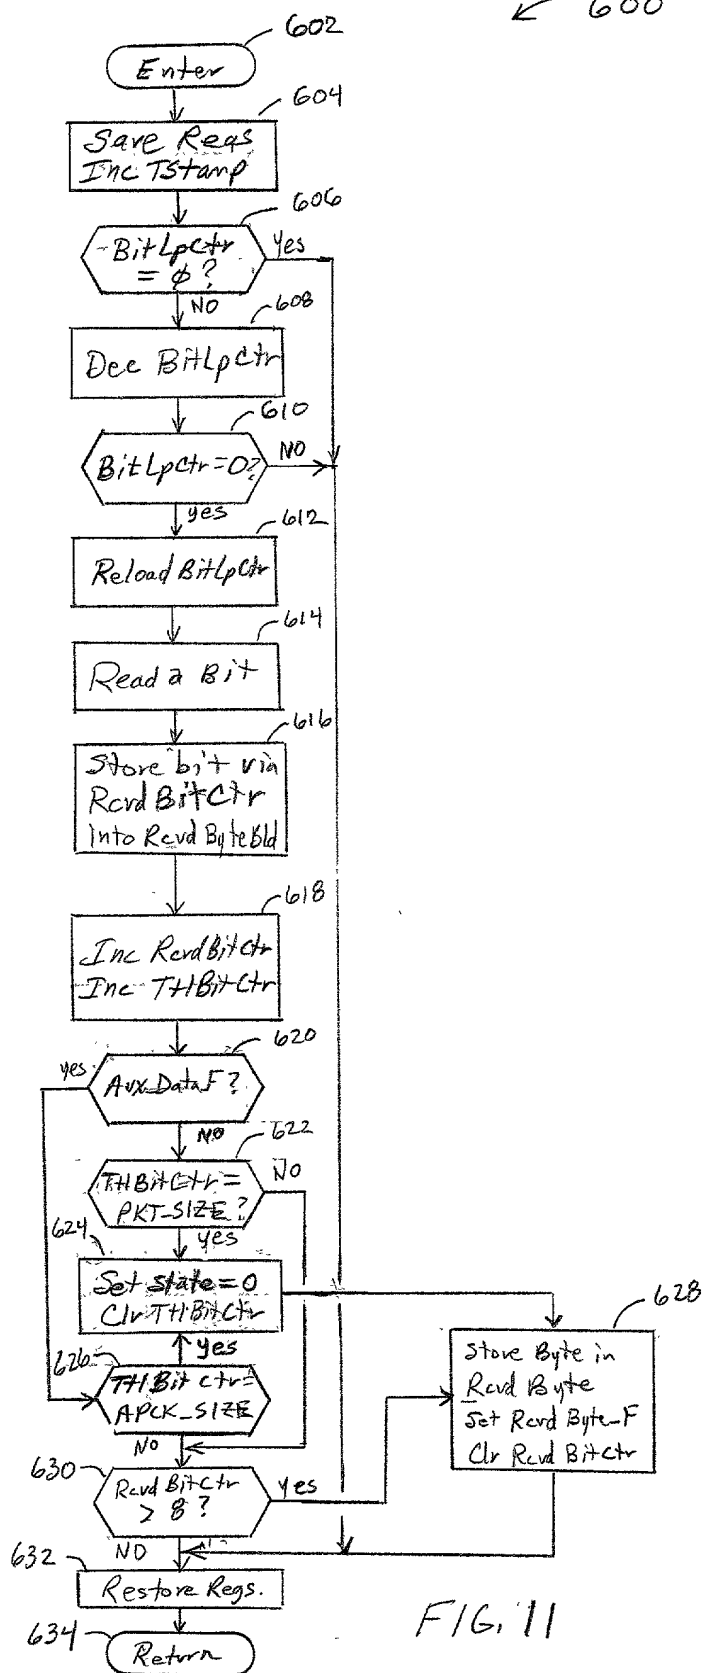 600
602
Enter
604
Save Regs
Inc TStamp
606
BitLpCtr
= ø?
Yes
NO
608
Dec BitLpCtr
610
BitLpCtr=0?
NO
yes
612
Reload BitLpCtr
614
Read a Bit
616
Store bit via
Rcvd BitCtr
into Rcvd ByteBld
618
Inc RcvdBitCtr
Inc THBitCtr
620
yes
Aux_DataF?
NO
622
THBitCtr=
PKT_SIZE?
NO
624
yes
Set state=0
Clr THBitCtr
628
yes
626
THBitCtr=
APCK_SIZE
Store Byte in
Rcvd Byte
Set Rcvd Byte_F
Clr Rcvd BitCtr
NO
630
Rcvd BitCtr
> 8?
Yes
NO
632
Restore Regs.
634
Return
FIG. 11